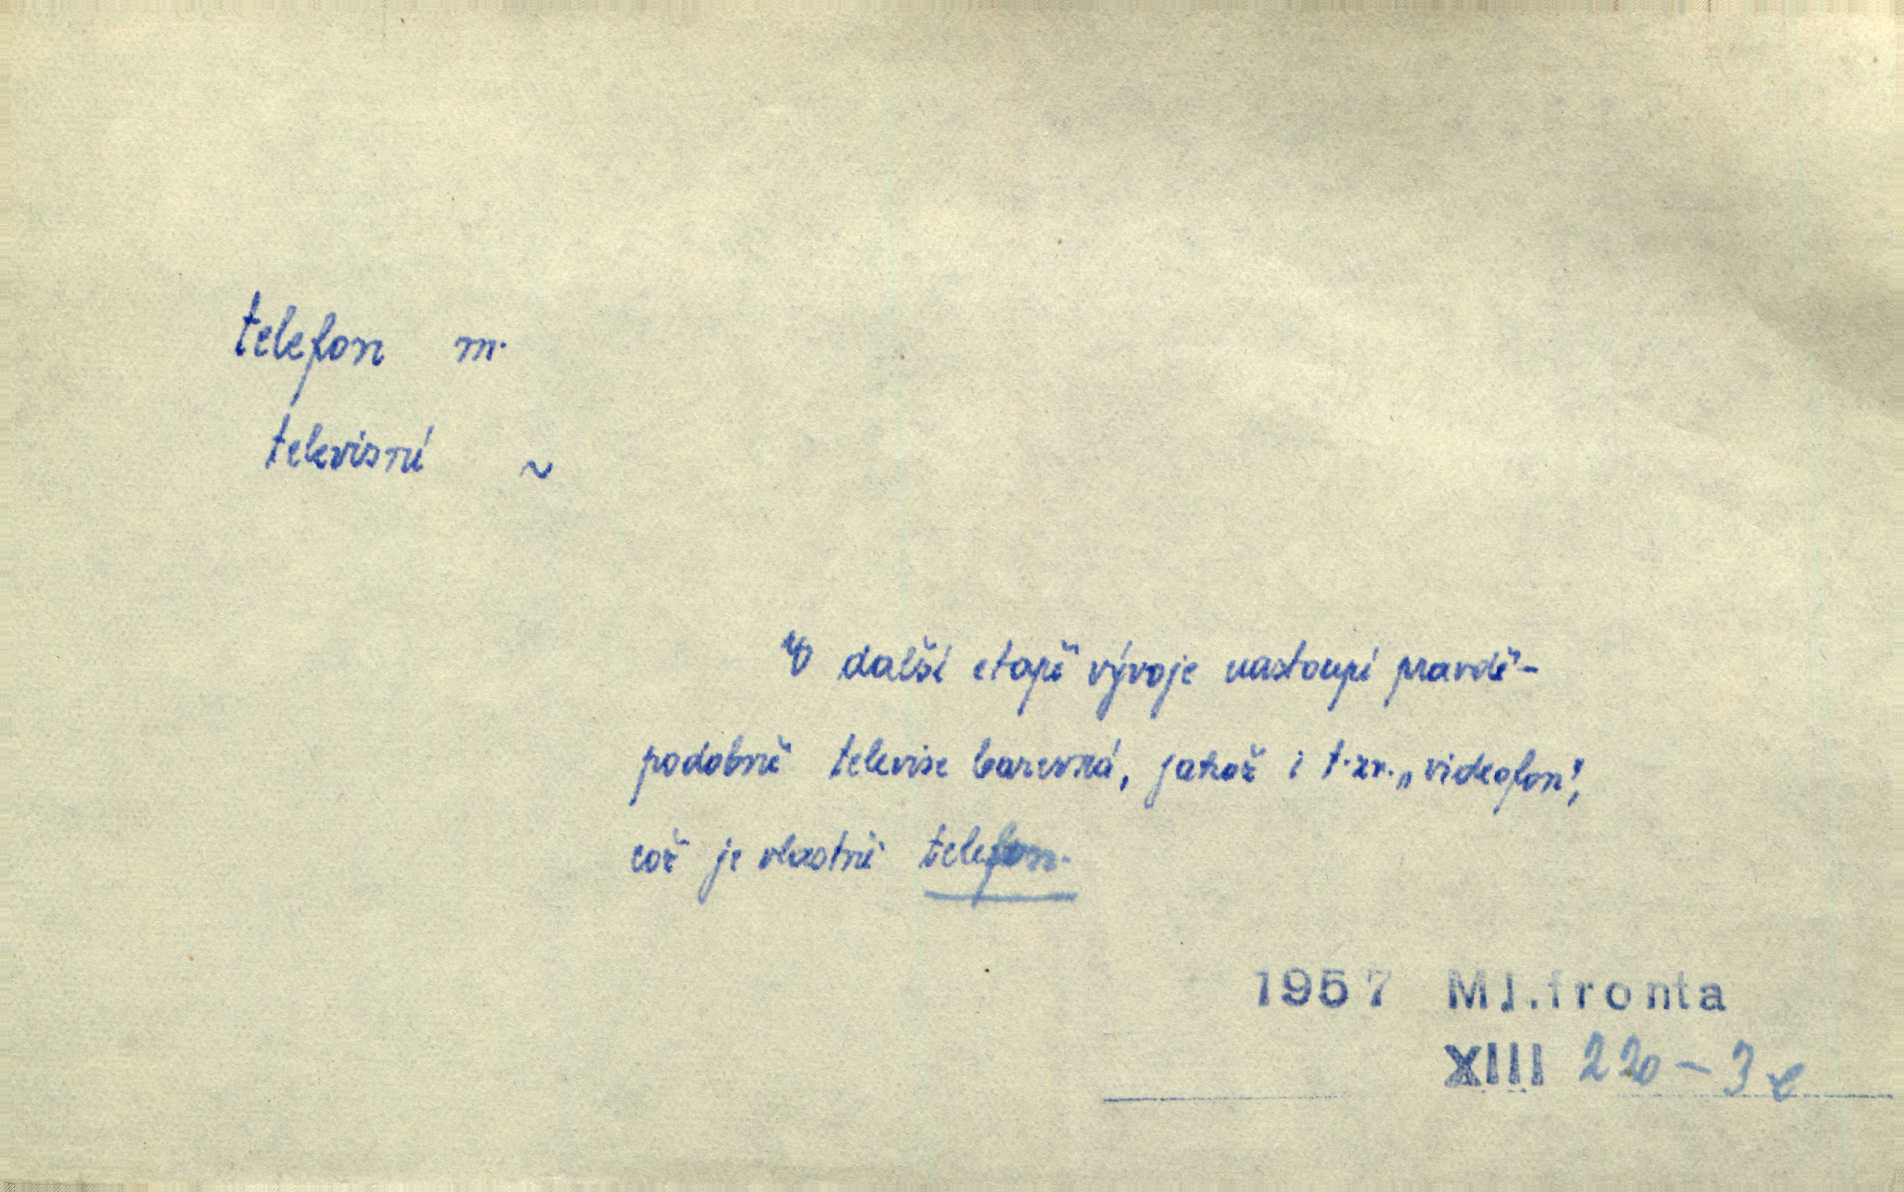 telefon m.
televisní ~
V další etapě vývoje nastoupí pravdě-
podobně televise barevná, jakož i t.zv. „videofon",
což je vlastně telefon.
1957 Ml.fronta
XIII 220-3c